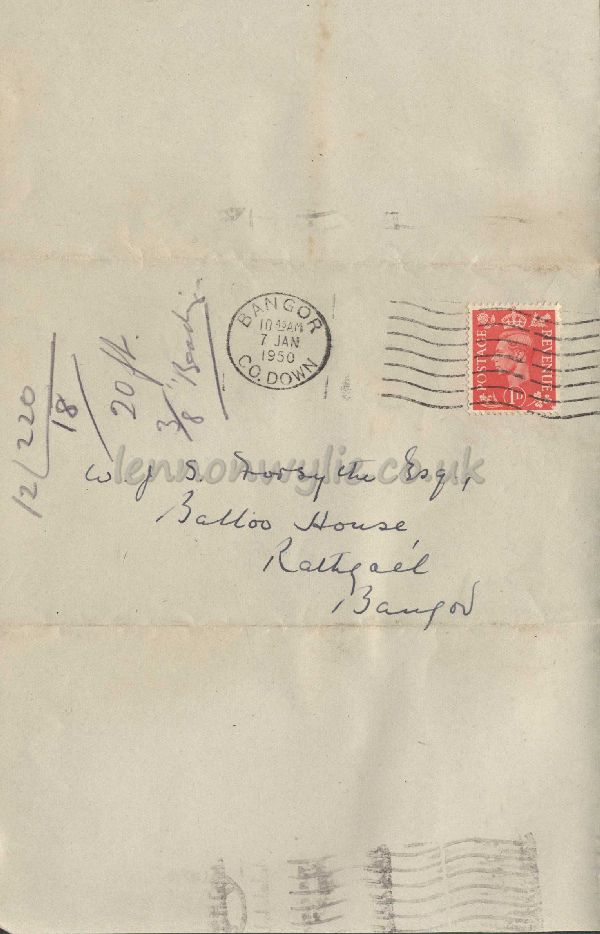 BANGOR
10 45 AM
7 JAN
1950
CO. DOWN
POSTAGE
REVENUE
1D
12/220
18
20 ft.
3/8 Beading
lennonwylie.co.uk
W. J S. Forsythe Esq.,
Balloo House,
Rathgael
Bangor